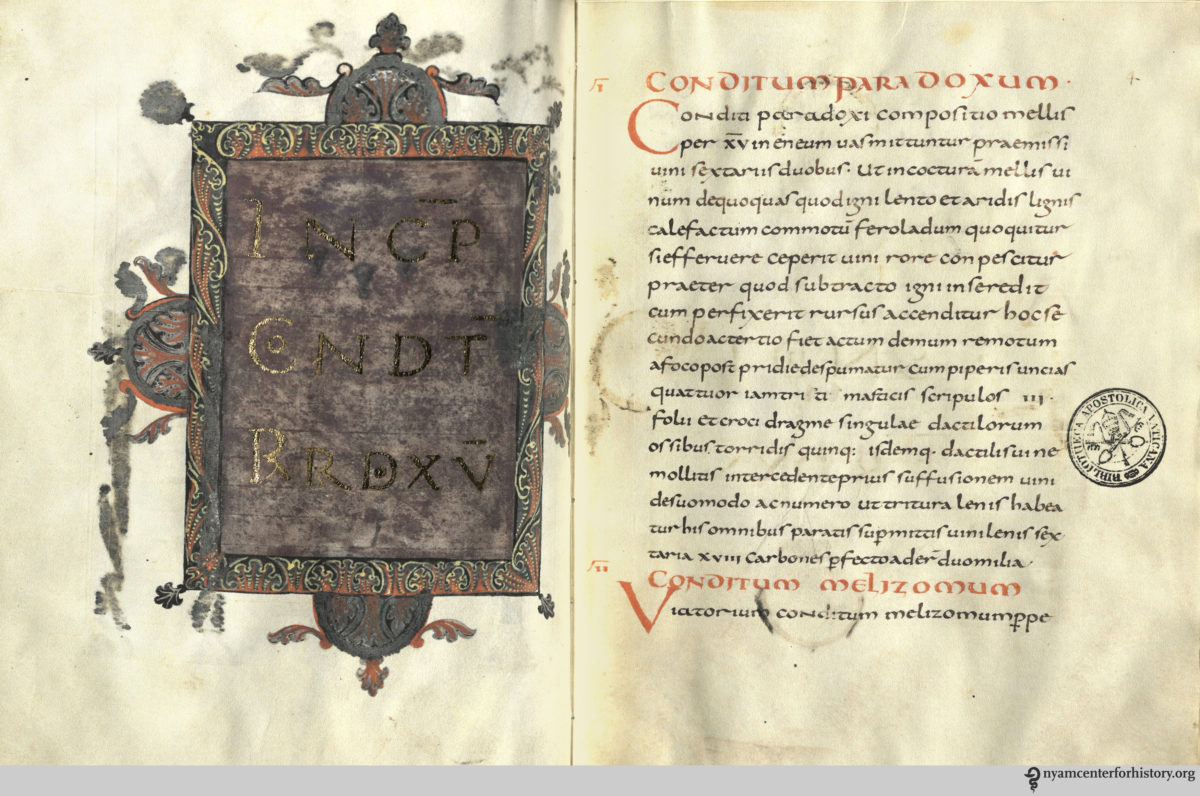 INCP
CNDT
BRDXV
I
CONDITUM PARADOXUM·
Conditi paradoxi compositio mellis
per xv in eneum vas mittuntur praemissi
uini sextariis duobus· Ut in coctura mellis ui
num dequoquas quod igni lento et aridis lignis
calefactum commotu ferola dum quoquitur
si efferuere ceperit uini rore conpescitur
praeter quod subtracto igni in se redit
cum perfixerit rursus accenditur hoc se
cundo ac tertio fiet ac tum demum remotum
a foco post pridie despumatur cum piperis uncias
quattuor iam triti masticis scripulos III·
folii et croci dragme singulae dactilorum
ossibus torridis quinq: isdemq· dactilis uine
mollitis intercedente prius suffusionem uini
de suo modo ac numero ut tritura lenis habea
tur his omnibus paratis supmittis uini lenis sex
taria xviii carbones pfecto ader duo milia·
II
CONDITUM MELIZOMUM
Viatorium conditum melizomum pe
BIBLIOTHECA APOSTOLICA VATICANA
nyamcenterforhistory.org